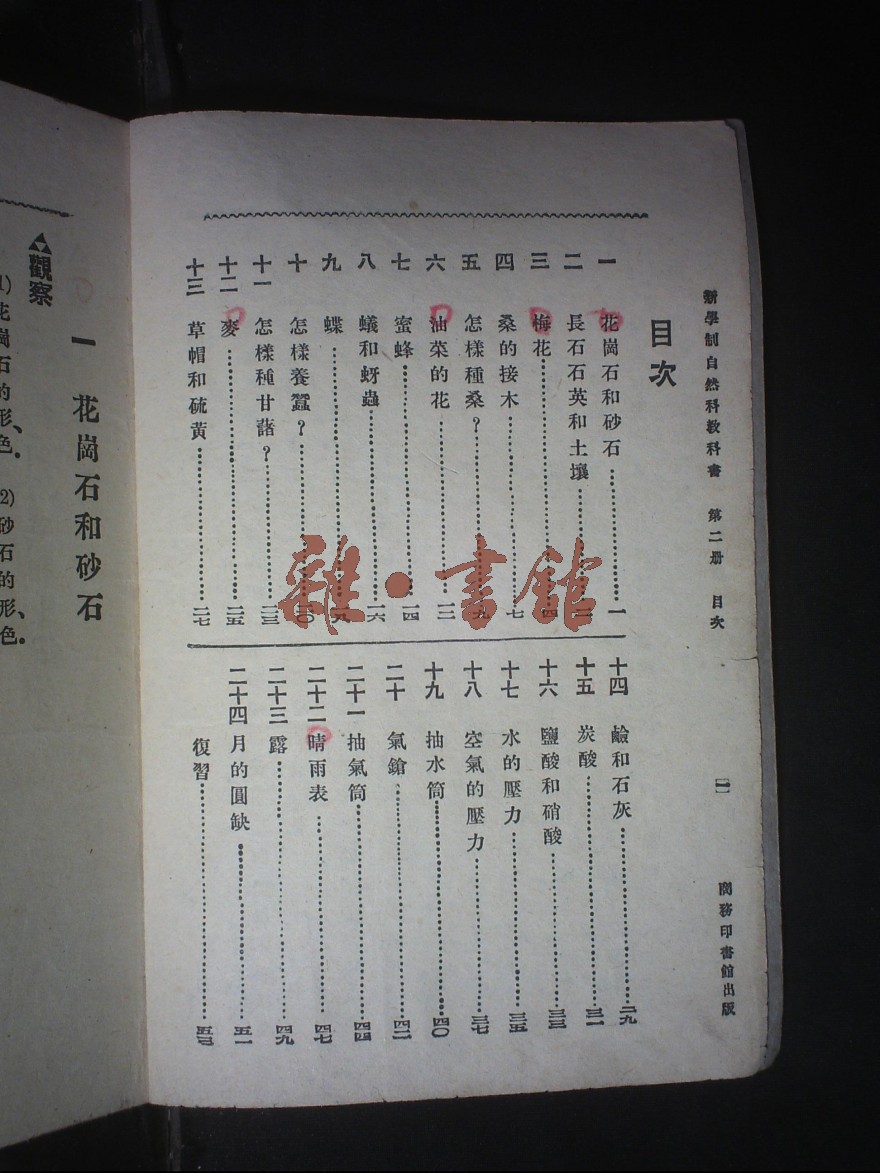 新學制自然科教科書 第二册 目次 (一) 商務印書館出版
目次
一 花崗石和砂石……一
二 長石石英和土壤……二
三 梅花……四
四 桑的接木……七
五 怎樣種桑？……九
六 油菜的花……一二
七 蜜蜂……一四
八 蟻和蚜蟲……一六
九 蝶……一九
十 怎樣養蠶？……二〇
十一 怎樣種甘藷？……二三
十二 麥……二五
十三 草帽和硫黃……二七
十四 鹼和石灰……二九
十五 炭酸……三一
十六 鹽酸和硝酸……三三
十七 水的壓力……三五
十八 空氣的壓力……三七
十九 抽水筒……四〇
二十 氣鎗……四二
二十一 抽氣筒……四四
二十二 晴雨表……四七
二十三 露……四九
二十四 月的圓缺……五一
復習……五三
雜·書館
一 花崗石和砂石
觀察
1) 花崗石的形、色。 2) 砂石的形、色。